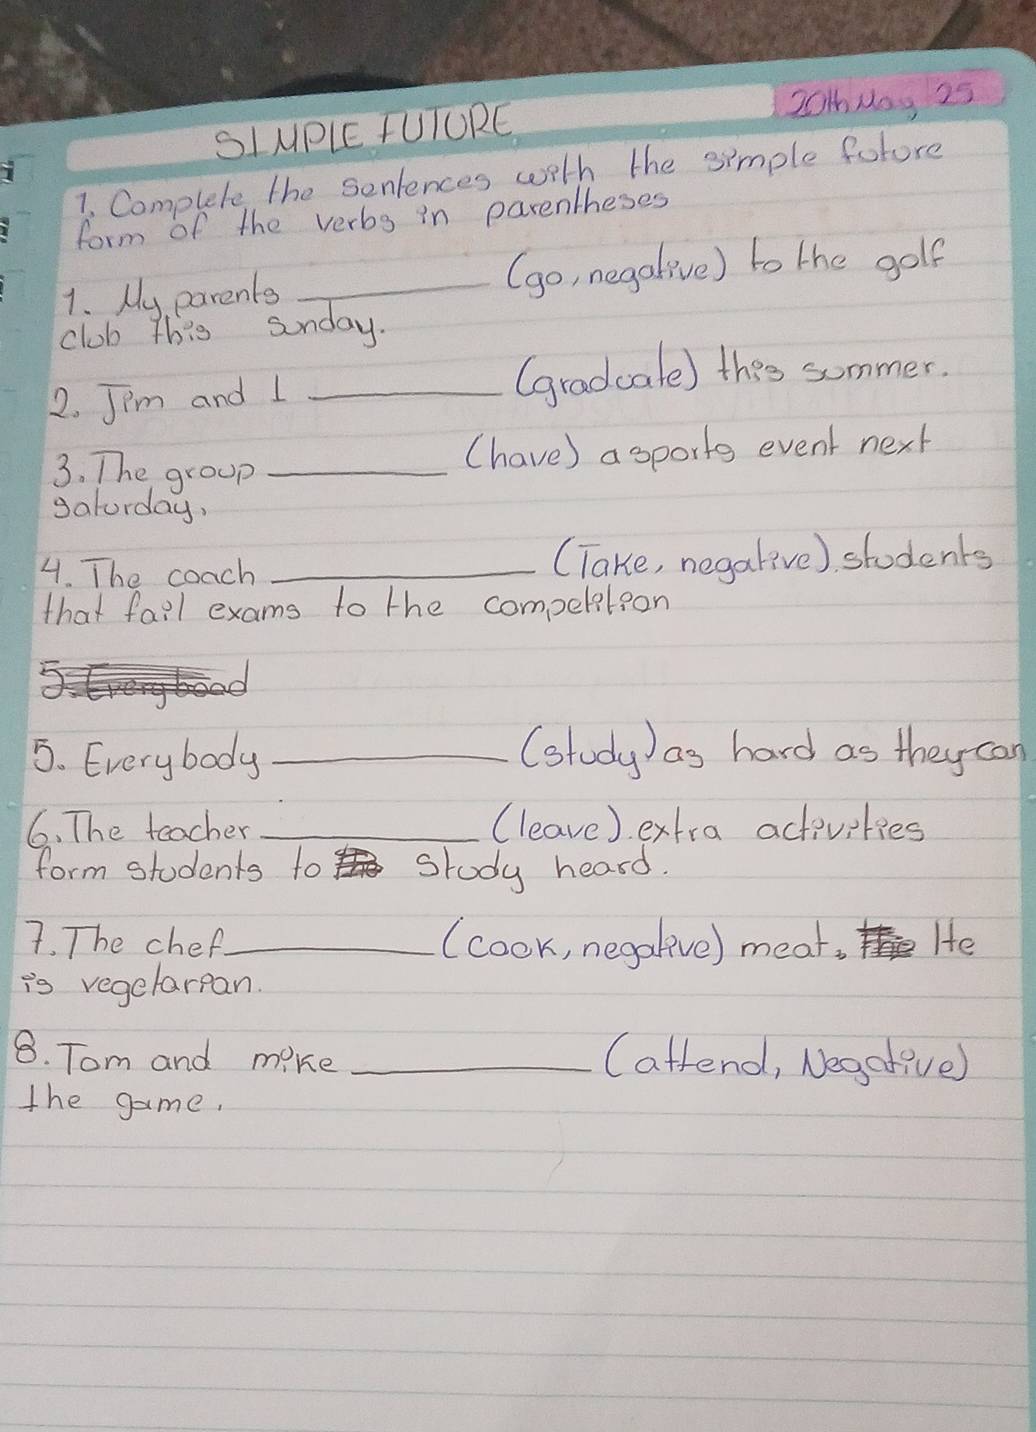 20th May 25
SIMPLE FUTURE
1. Complete the sentences with the simple future
form of the verbs in parentheses
1. My parents __________ (go, negative) to the golf
club this sunday.
2. Jim and I __________ (graduate) this summer.
3. The group __________ (have) a sports event next
saturday,
4. The coach __________ (Take, negative). students
that fail exams to the competition
5. Everyboad
5. Everybody __________ (study) as hard as they can
6. The teacher __________ (leave). extra activities
form students to the study heard.
7. The chef __________ (cook, negative) meat. The He
is vegetarian.
8. Tom and mike __________ (attend, Negative)
the game.